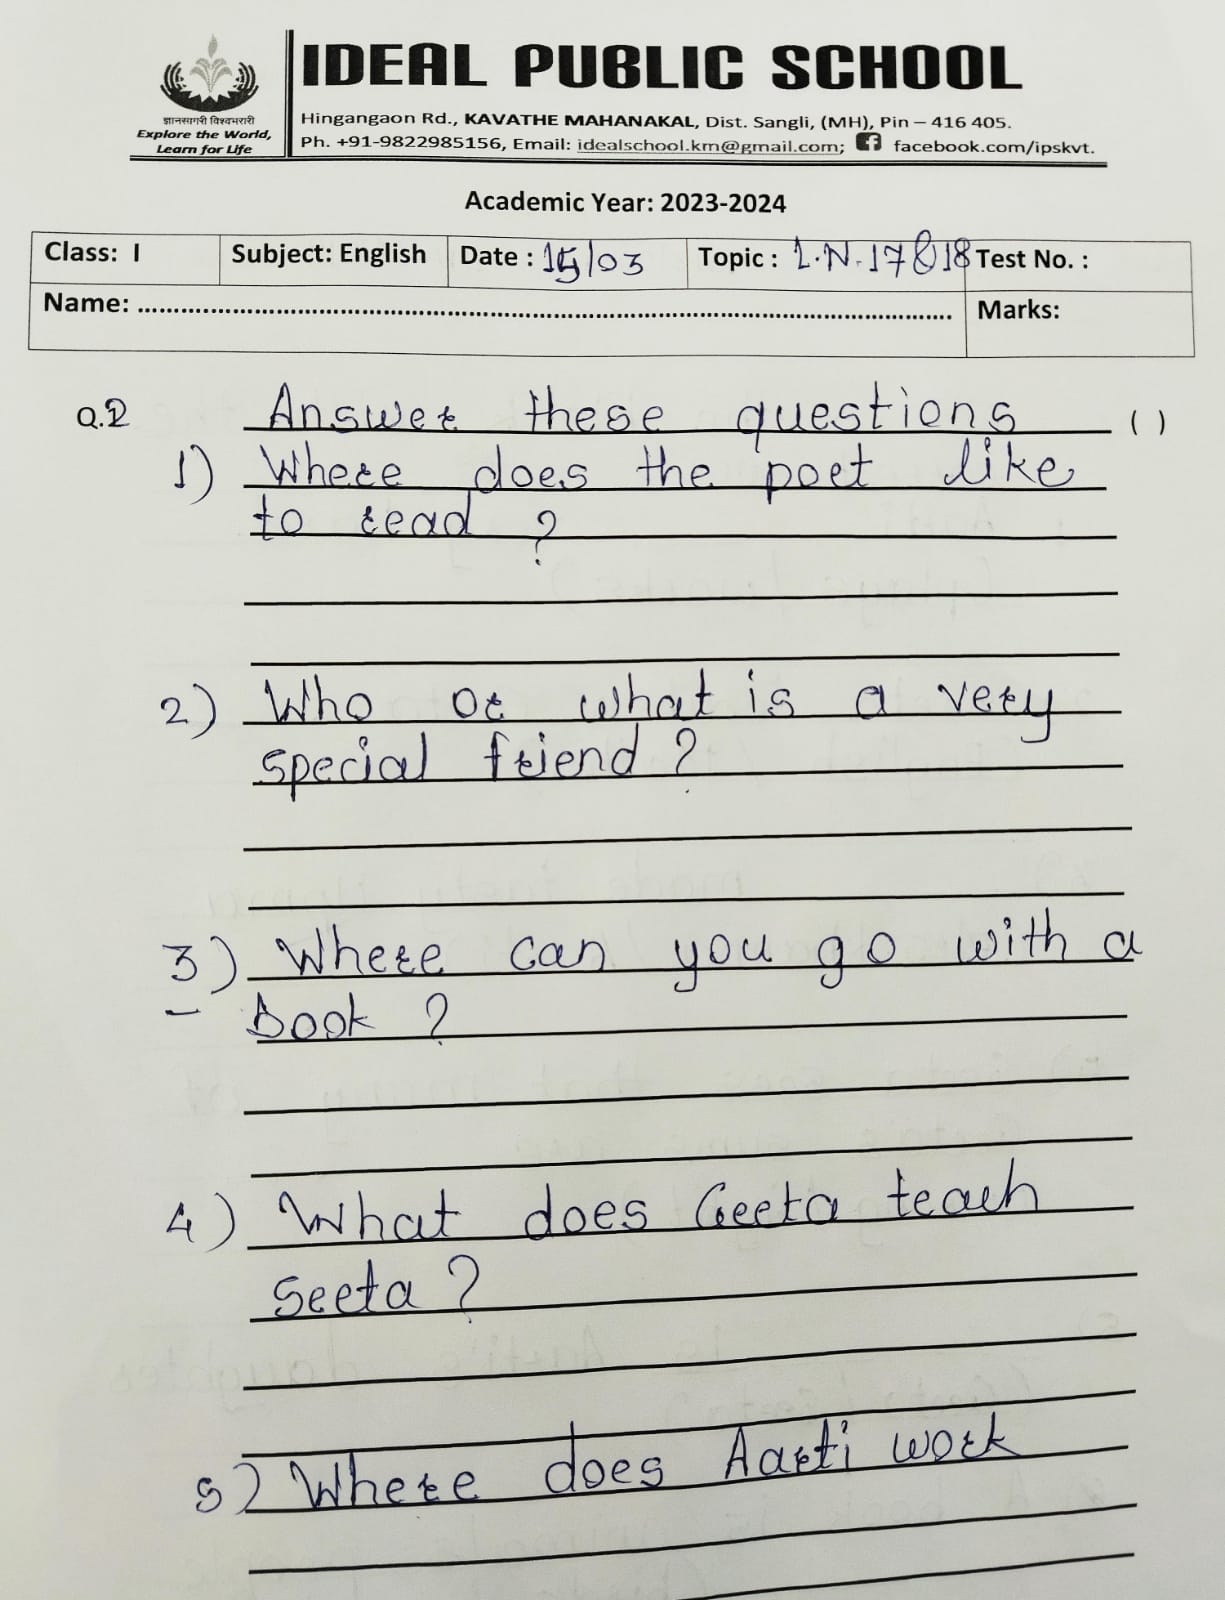 IDEAL PUBLIC SCHOOL
ज्ञानसागरी विश्वभरारी
Explore the World,
Learn for Life
Hingangaon Rd., KAVATHE MAHANAKAL, Dist. Sangli, (MH), Pin – 416 405.
Ph. +91-9822985156, Email: idealschool.km@gmail.com; facebook.com/ipskvt.
Academic Year: 2023-2024
Class: I Subject: English Date : 15/03 Topic : L.N.17&18 Test No. :
Name: Marks:
Q.2 Answer these questions ( )
1) Where does the poet like
to read ?
2) Who or what is a very
special friend ?
3) Where can you go with a
book ?
4) What does Geeta teach
Seeta ?
5) Where does Aarti work